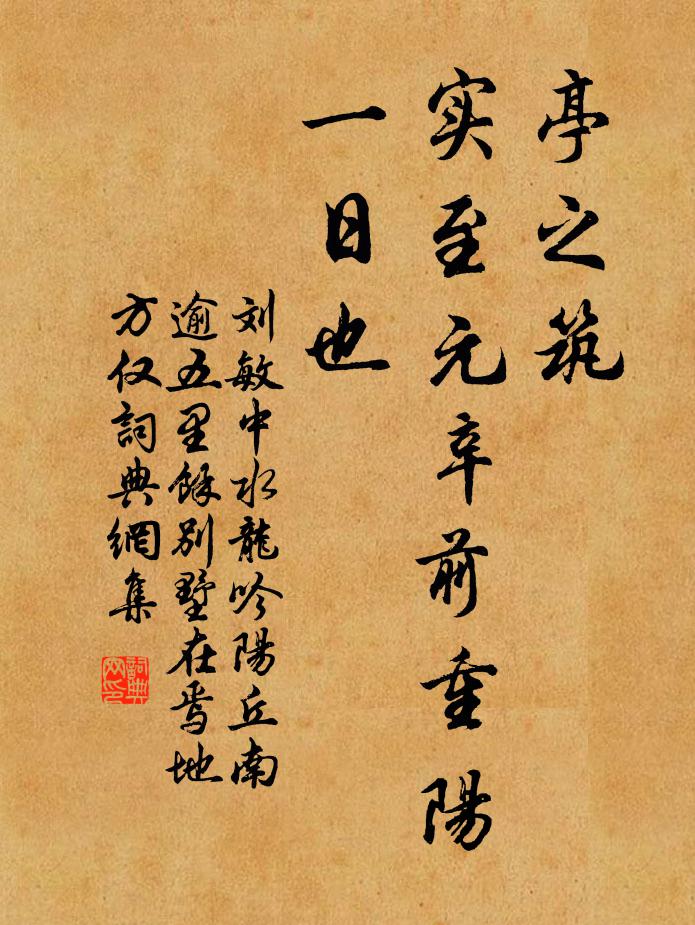 亭之筑
实至元辛前重陽
一日也
刘敏中水龍吟陽丘南
逾五里餘别墅在焉地
方仅詞典網集
詞典
网印